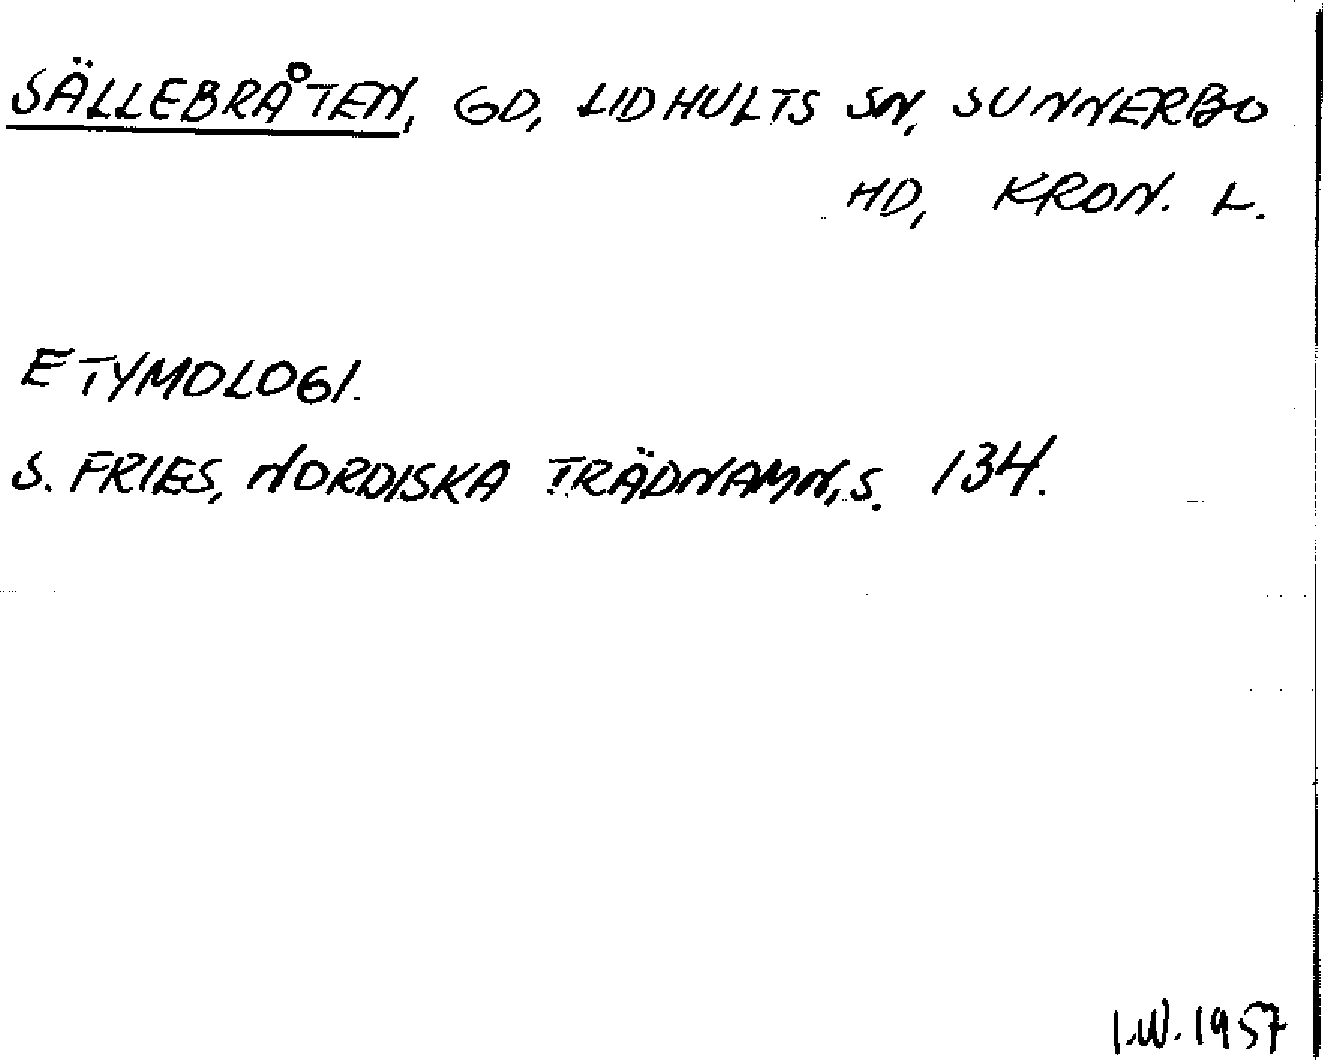 SÄLLEBRÅTEN, GD, LIDHULTS SN, SUNNERBO
HD, KRON. L.
ETYMOLOGI.
S. FRIES, NORDISKA TRÄDNAMN, S. 134.
I.W. 1957